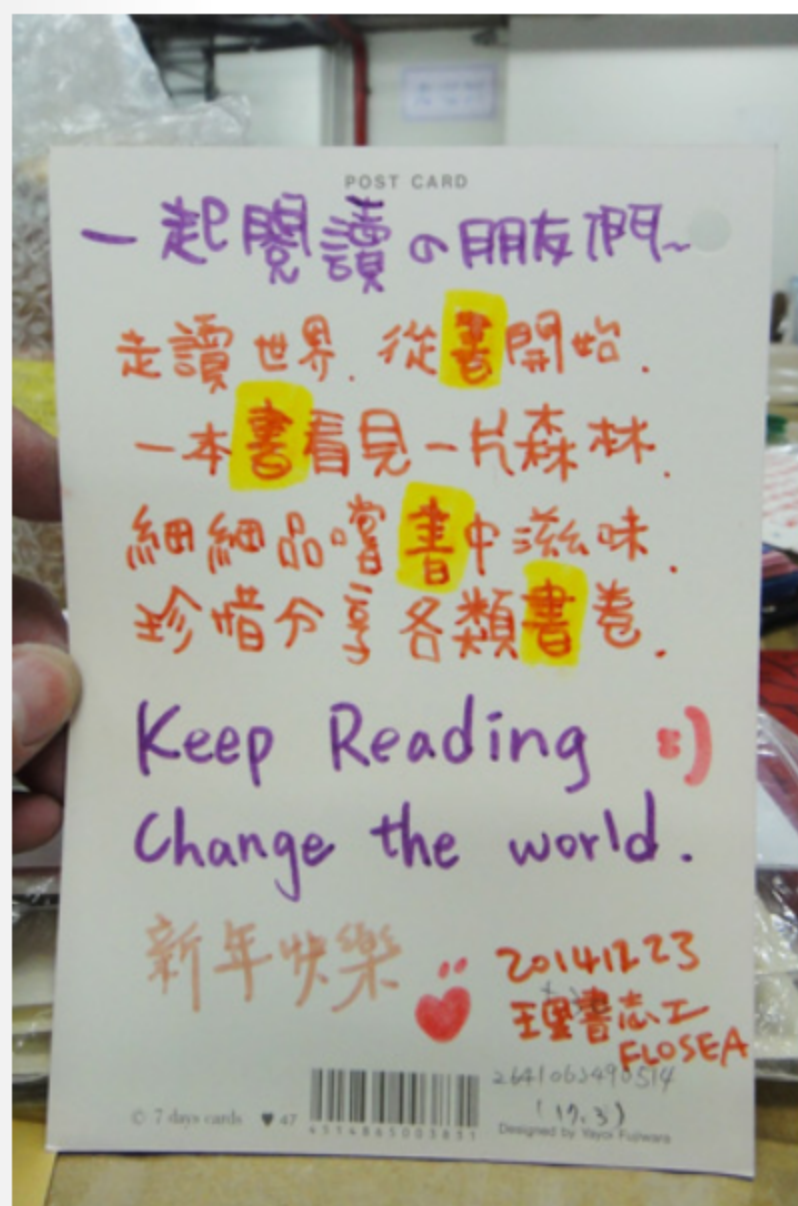 POST CARD
一起閱讀の朋友們~
走讀世界.從書開始.
一本書看見一片森林.
細細品嚐書中滋味.
珍惜分享各類書卷.
Keep Reading :)
Change the world.
新年快樂
20141223
理書志工
FLOSEA
2641063490514
(17.3)
© 7 days cards ♥ 47
4514865003831
Designed by Yayoi Fujiwara